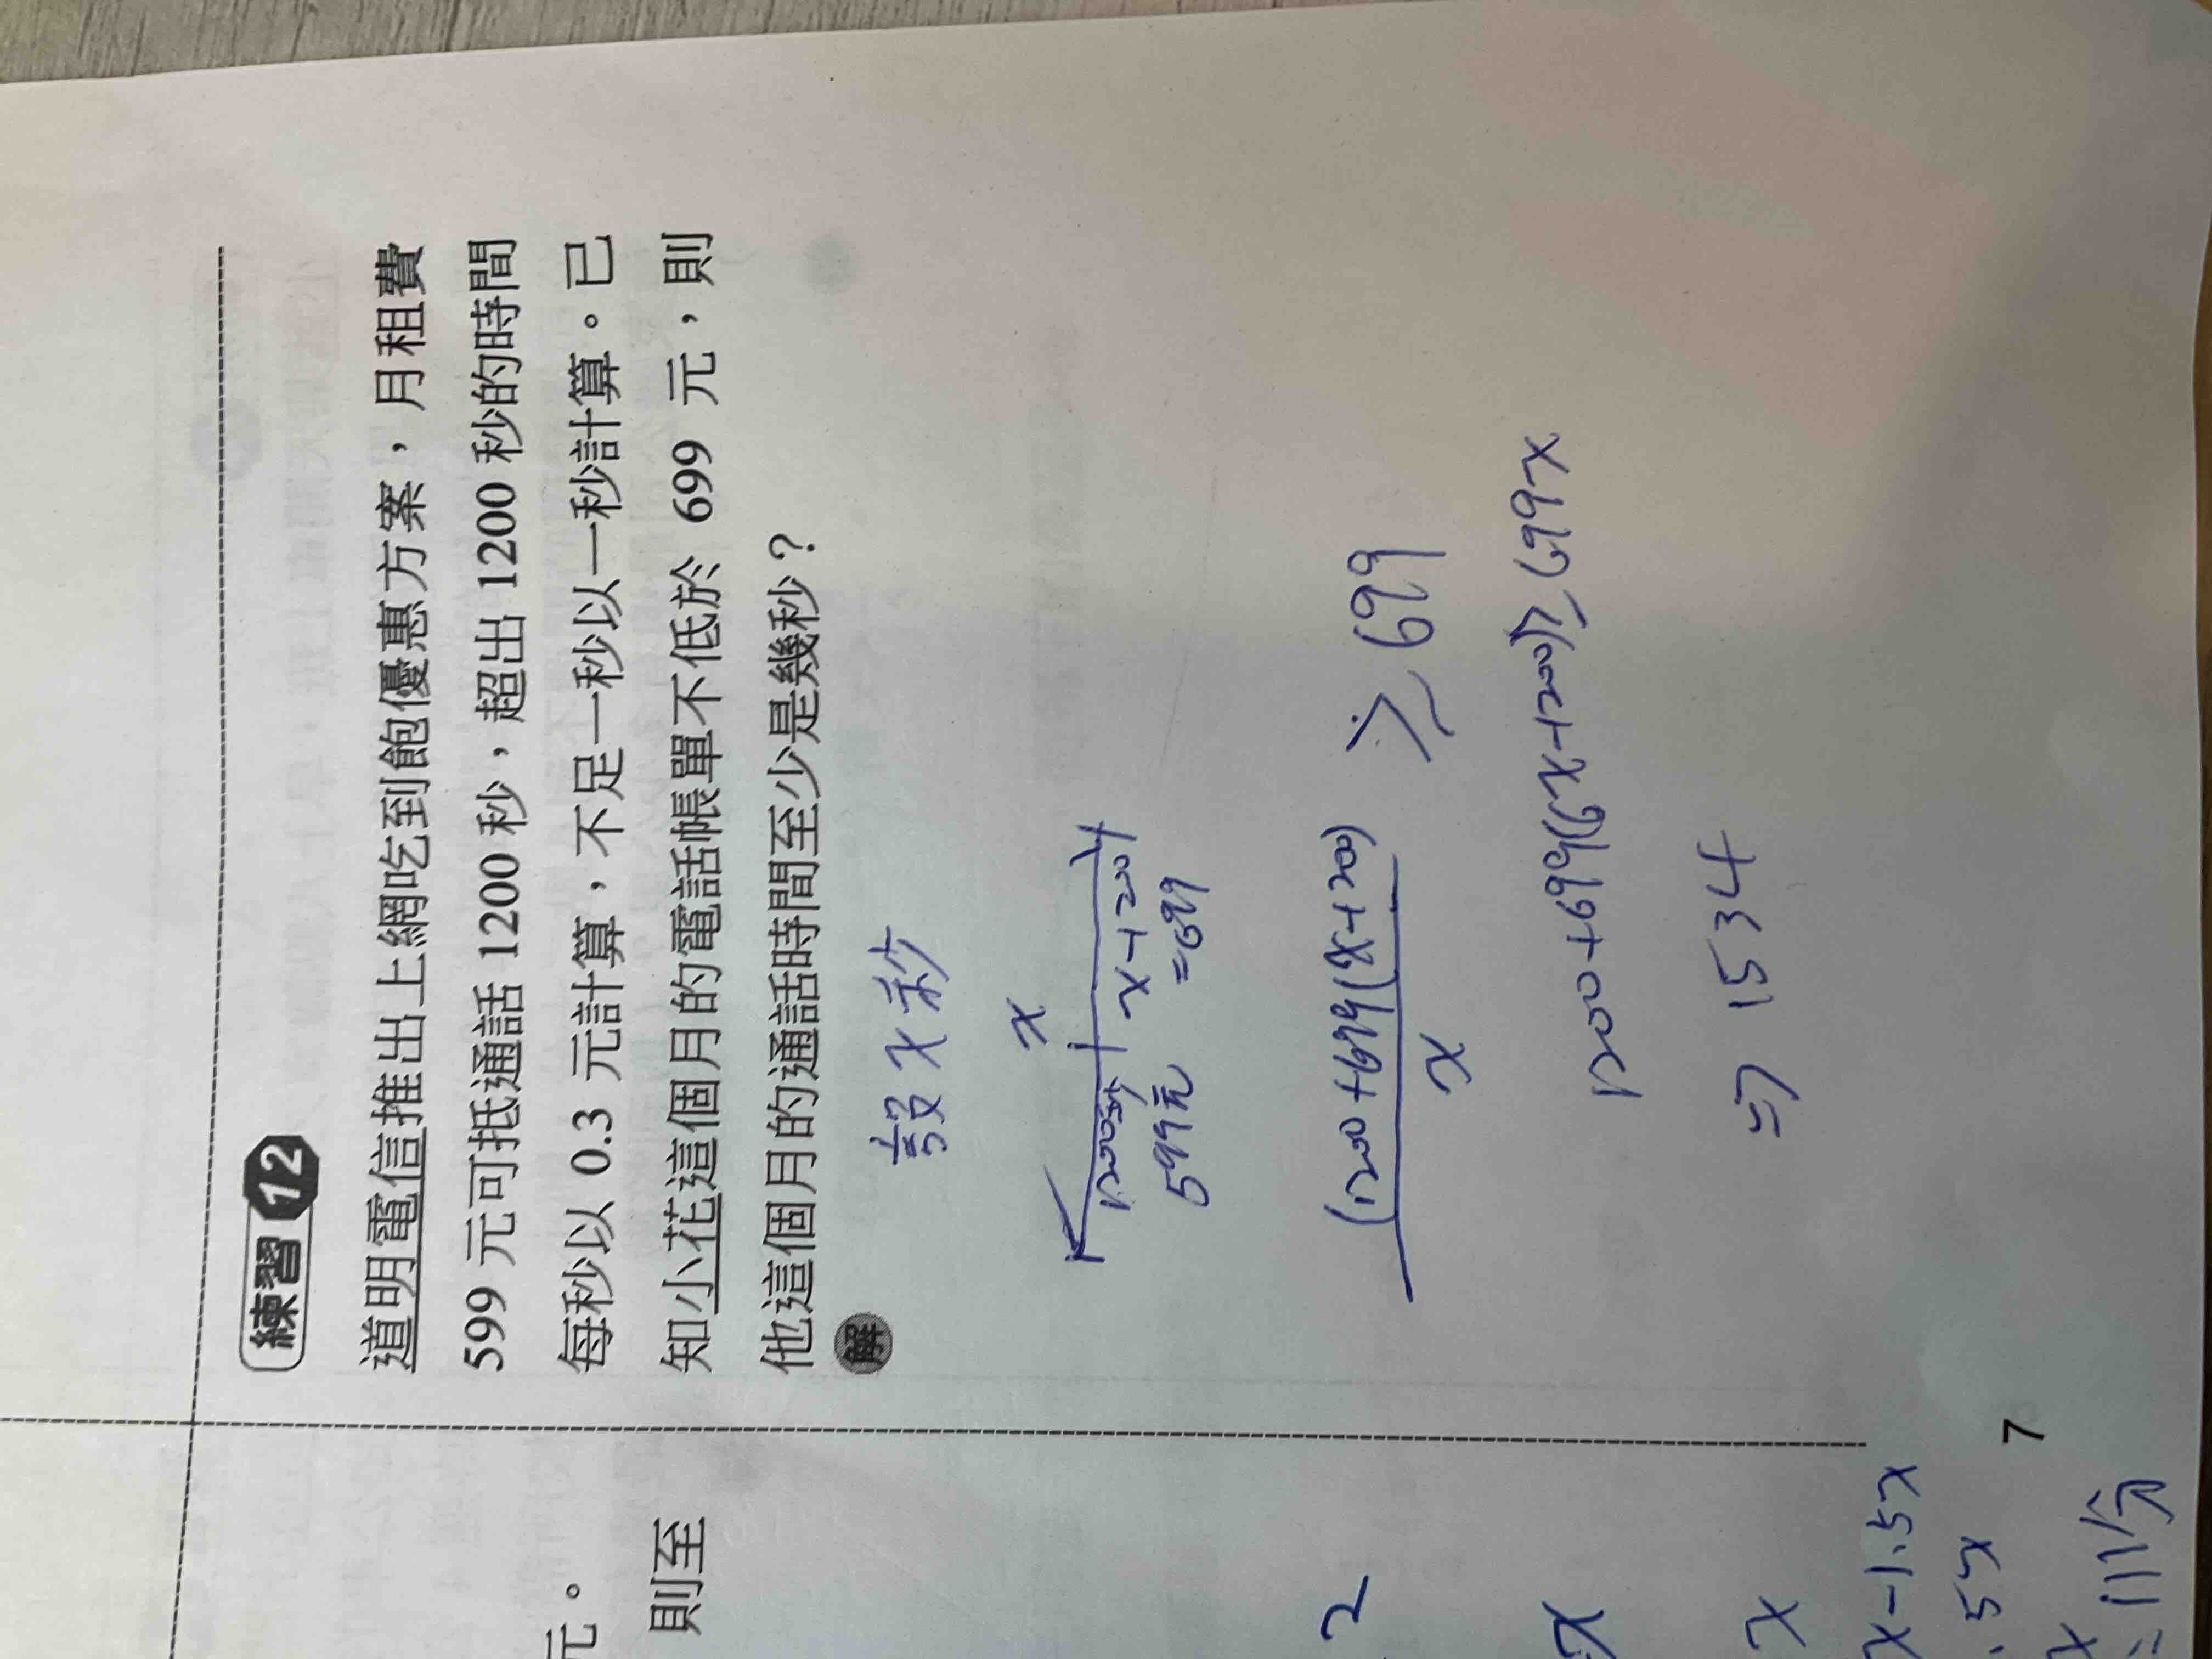 練習 12
道明電信推出上網吃到飽優惠方案，月租費
599 元可抵通話 1200 秒，超出 1200 秒的時間
每秒以 0.3 元計算，不足一秒以一秒計算。已
知小花這個月的電話帳單不低於 699 元，則
他這個月的通話時間至少是幾秒？
解
設 x 秒
x
1200秒 x-1200
599元 =699
(1200+699(x-1200) ≥ 699
x
1200+699(x-1200) ≥ 699x
⇒ 1534
元。
則至
2
x
x
x-1.5x
.5x
x
= 111分
7